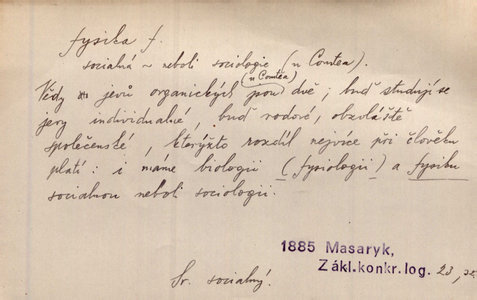 fysika f.
socialná ~ neboli sociologie (u Comtea).
(u Comtea)
Vědy jevů organických jsou dvě; buď studují se
jevy individualne, buď rodové, obzvláště
společenské, kterýžto rozdíl nejvíce při člověku
platí: i máme biologii (fysiologii) a fysiku
socialnou neboli sociologii.
1885 Masaryk,
Zákl.konkr.log. 23,
Sr. socialný.